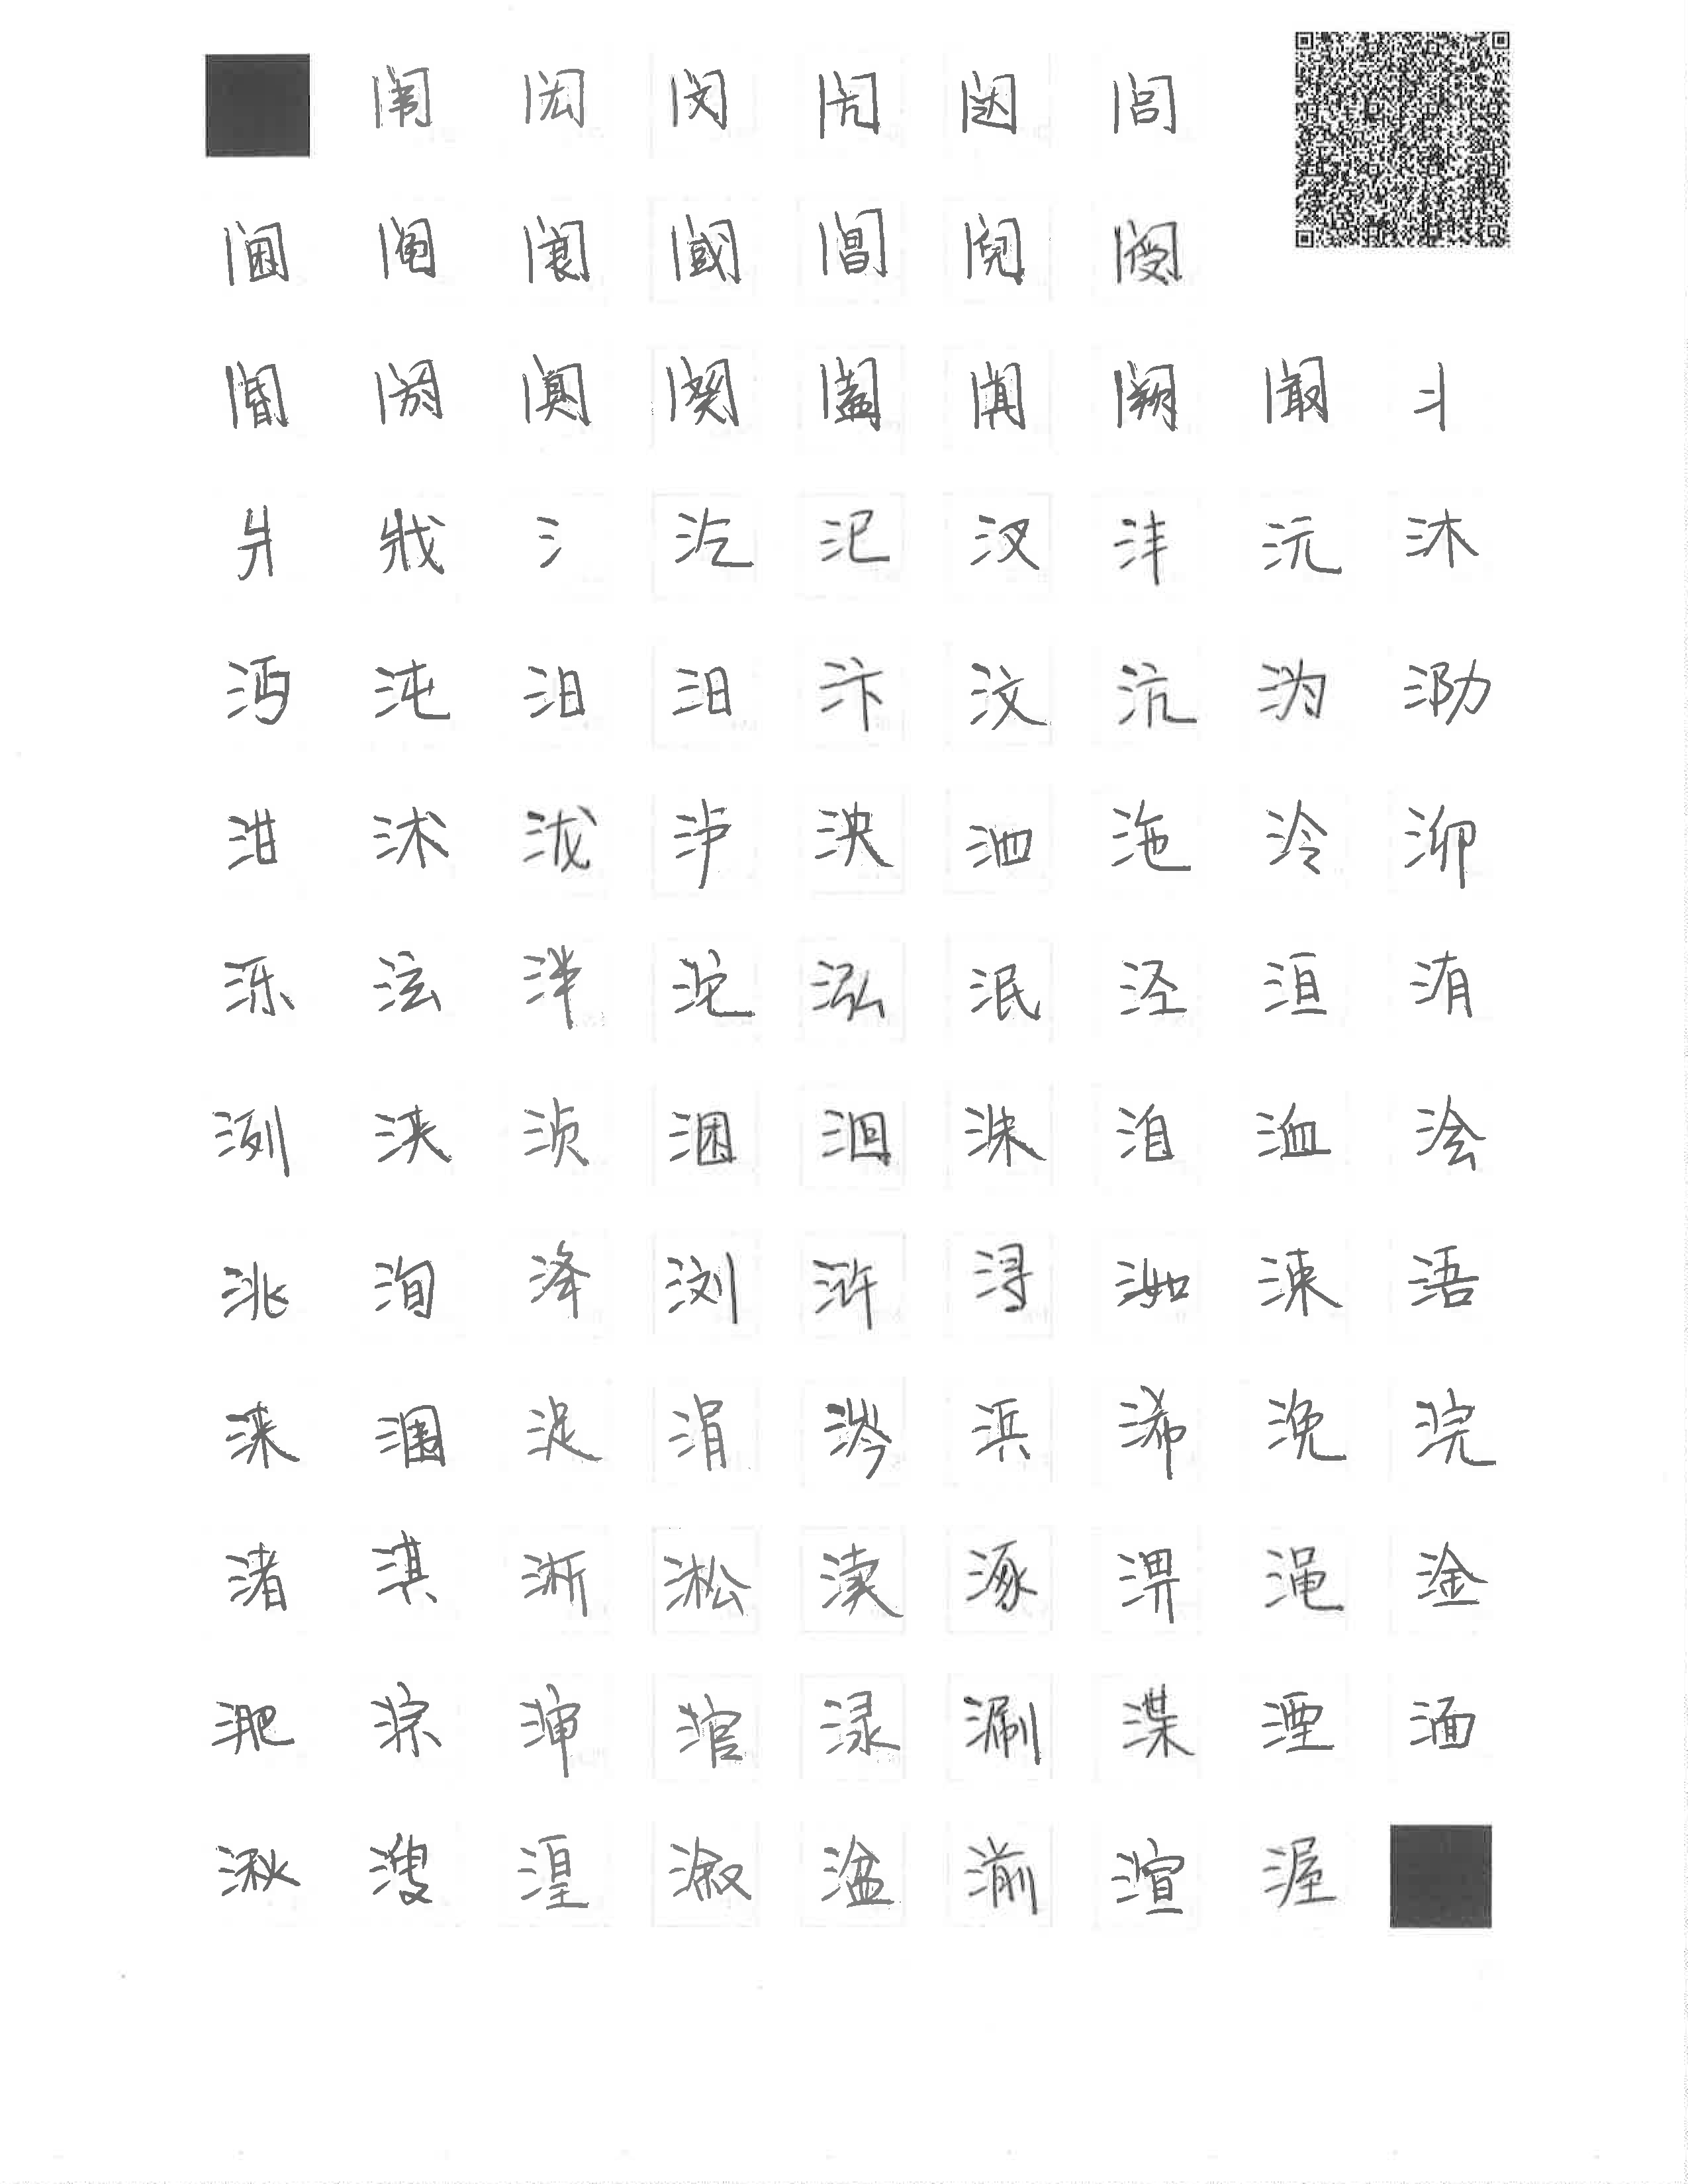 闱 闳 闵 闶 闼 闾
阃 阄 阆 阈 阊 阋 阌
阍 阏 阒 阕 阖 阗 阙 阚 丬
爿 戕 氵 汔 汜 汊 沣 沅 沐
沔 沌 汨 汩 汴 汶 沆 沩 泐
泔 沭 泷 泸 泱 泗 沲 泠 泖
泺 泫 泮 沱 泓 泯 泾 洹 洧
洌 浃 浈 洇 洄 洙 洎 洫 浍
洮 洵 洚 浏 浒 浔 洳 涑 浯
涞 涠 浞 涓 涔 浜 浠 浼 浣
渚 淇 淅 淞 渎 涿 淠 渑 淦
淝 淙 渖 涫 渌 涮 渫 湮 湎
湫 溲 湟 溆 湓 湔 渲 渥